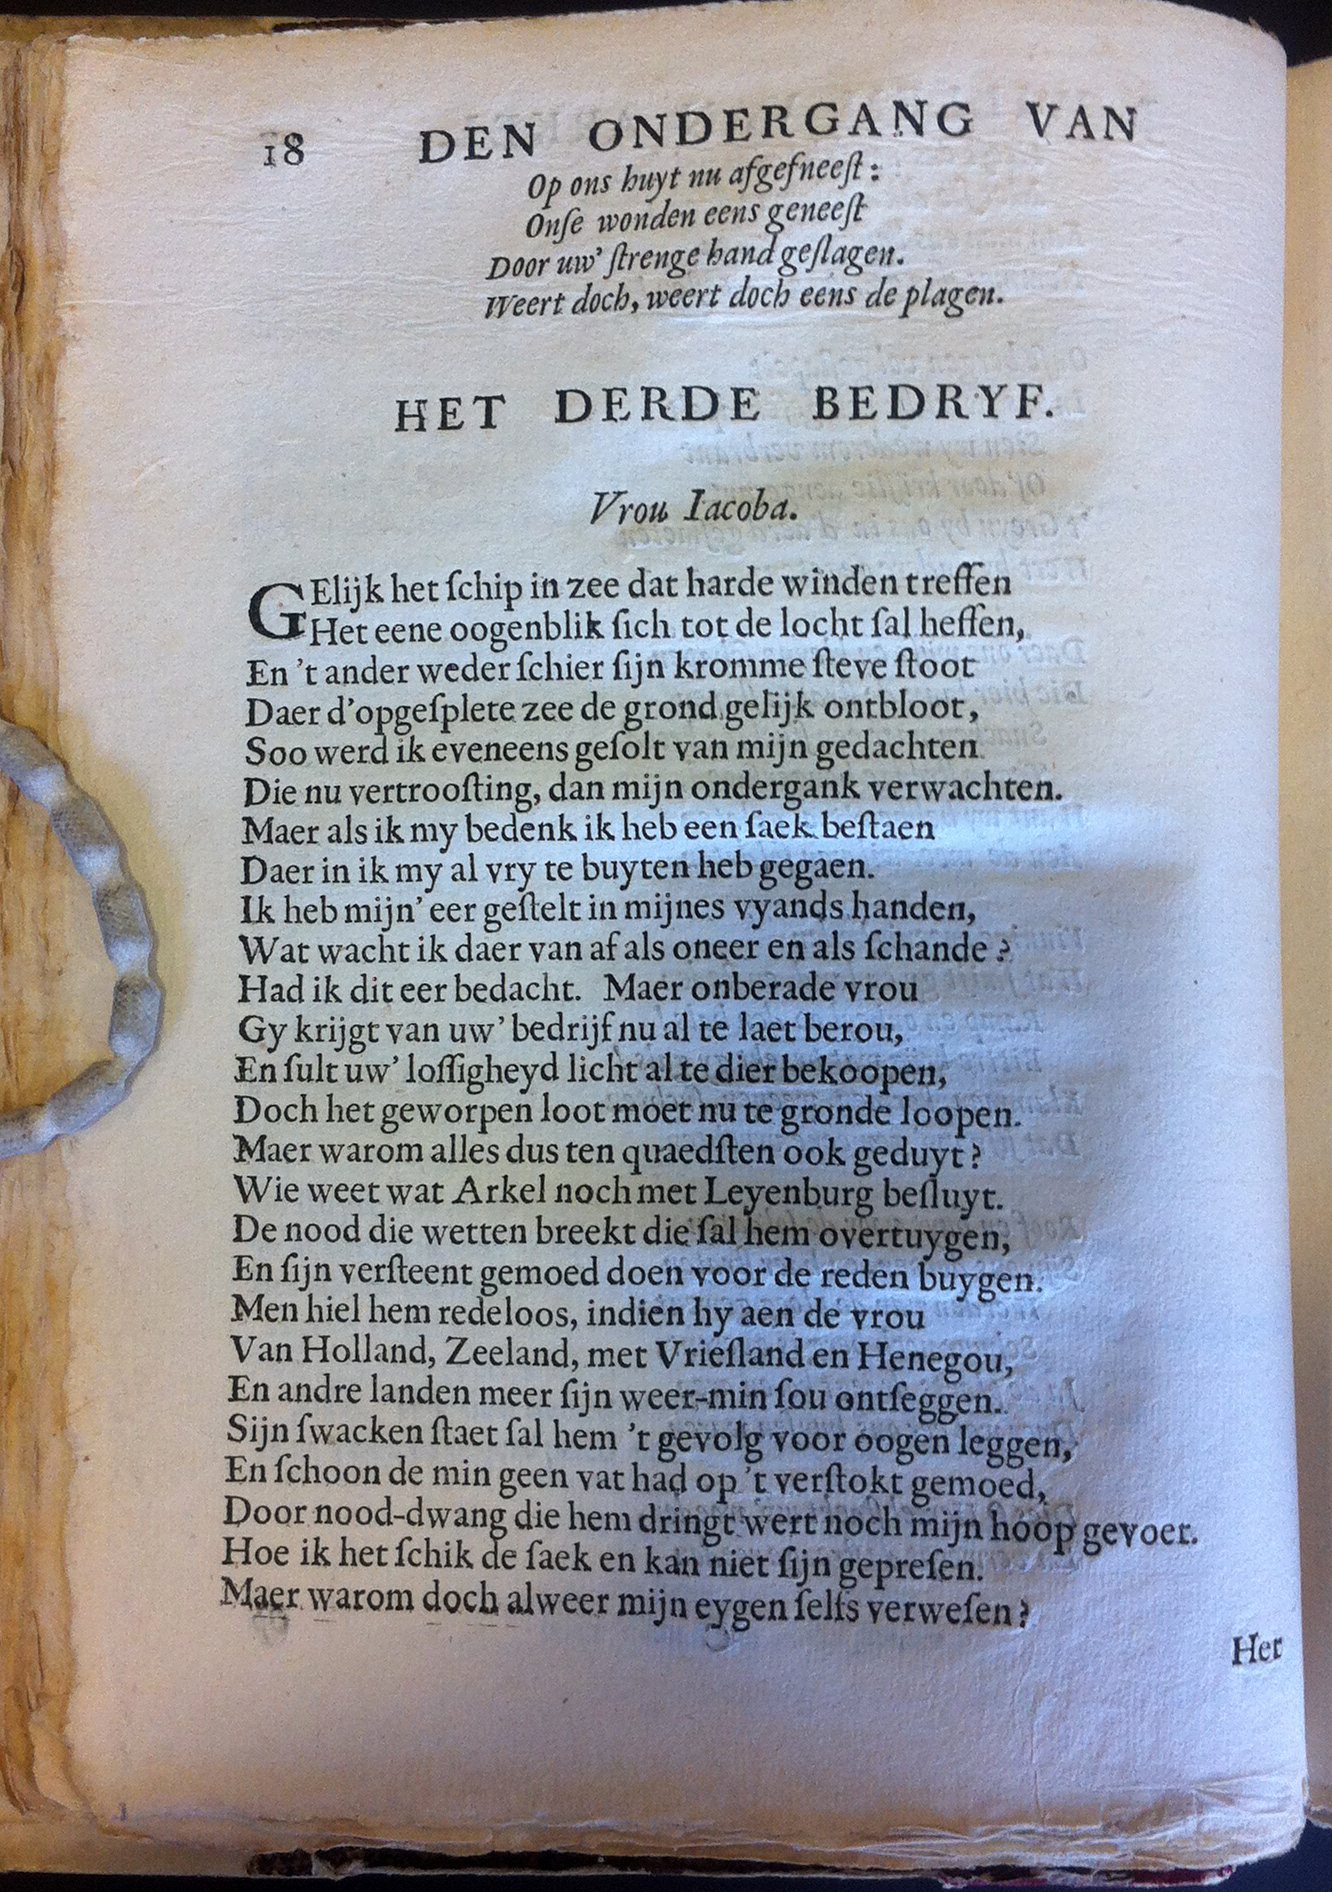 18 DEN ONDERGANG VAN
Op ons huyt nu afgeſneeſt:
Onſe wonden eens geneeſt
Door uw' ſtrenge hand geſlagen.
Weert doch, weert doch eens de plagen.
HET DERDE BEDRYF.
Vrou Iacoba.
GElijk het ſchip in zee dat harde winden treffen
Het eene oogenblik ſich tot de locht ſal heffen,
En 't ander weder ſchier ſijn kromme ſteve ſtoot
Daer d'opgeſplete zee de grond gelijk ontbloot,
Soo werd ik eveneens geſolt van mijn gedachten
Die nu vertrooſting, dan mijn ondergank verwachten.
Maer als ik my bedenk ik heb een ſaek beſtaen
Daer in ik my al vry te buyten heb gegaen.
Ik heb mijn' eer geſtelt in mijnes vyands handen,
Wat wacht ik daer van af als oneer en als ſchande?
Had ik dit eer bedacht. Maer onberade vrou
Gy krijgt van uw' bedrijf nu al te laet berou,
En ſult uw' loſſigheyd licht al te dier bekoopen,
Doch het geworpen loot moet nu te gronde loopen.
Maer warom alles dus ten quaedſten ook geduyt?
Wie weet wat Arkel noch met Leyenburg beſluyt.
De nood die wetten breekt die ſal hem overtuygen,
En ſijn verſteent gemoed doen voor de reden buygen.
Men hiel hem redeloos, indien hy aen de vrou
Van Holland, Zeeland, met Vrieſland en Henegou,
En andre landen meer ſijn weer-min ſou ontſeggen.
Sijn ſwacken ſtaet ſal hem 't gevolg voor oogen leggen,
En ſchoon de min geen vat had op 't verſtokt gemoed,
Door nood-dwang die hem dringt wert noch mijn hoop gevoet.
Hoe ik het ſchik de ſaek en kan niet ſijn gepreſen.
Maer warom doch alweer mijn eygen ſelfs verweſen?
Het